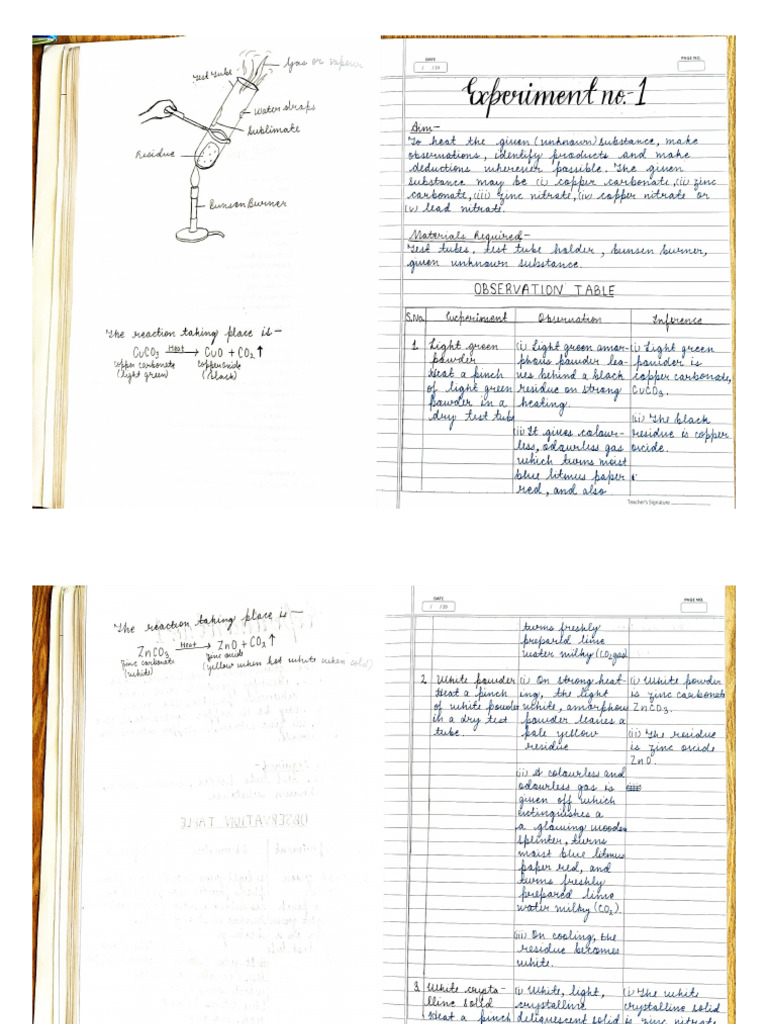 Gas or vapour
Test Tube
Water drops
Sublimate
Residue
Bunson Burner
The reaction taking place is—
CuCO3 Heat→ CuO + CO2↑
copper carbonate copper oxide
(light green) (black)
DATE
/ /20
PAGE NO.
Experiment no.-1
Aim-
To heat the given (unknown) substance, make
observations, identify products and make
deductions wherever possible. The given
substance may be (i) copper carbonate, (ii) zinc
carbonate, (iii) zinc nitrate, (iv) copper nitrate or
(v) lead nitrate.
Materials Required-
Test tubes, test tube holder, bunsen burner,
given unknown substance.
OBSERVATION TABLE
S.No. Experiment Observation Inference
1. Light green (i) Light green amor- (i) Light green
powder phous powder lea- powder is
Heat a pinch ves behind a black copper carbonate,
of light green residue on strong CuCO3.
powder in a heating.
dry test tube (ii) The black
(ii) It gives colour- residue is copper
less, odourless gas oxide.
which turns moist
blue litmus paper
red, and also
Teacher's Signature
The reaction taking place is—
ZnCO3 Heat→ ZnO + CO2↑
Zinc carbonate Zinc oxide
(white) (yellow when hot white when cold)
DATE
/ /20
PAGE NO.
turns freshly
prepared lime
water milky (CO2 gas)
2. White powder (i) On strong heat- (i) White powder
Heat a pinch ing, the light is zinc carbonate
of white powder white, amorphous ZnCO3.
in a dry test powder leaves a
tube. pale yellow (ii) The residue
residue is zinc oxide
ZnO.
(ii) A colourless and
odourless gas is
given off which
extinguishes a
a glowing wooden
splinter, turns
moist blue litmus
paper red, and
turns freshly
prepared lime
water milky (CO2).
(iii) On cooling, the
residue becomes
white.
3. White crysta- (i) White, light, (i) The white
lline solid crystalline crystalline solid
Heat a pinch deliquescent solid is zinc nitrate